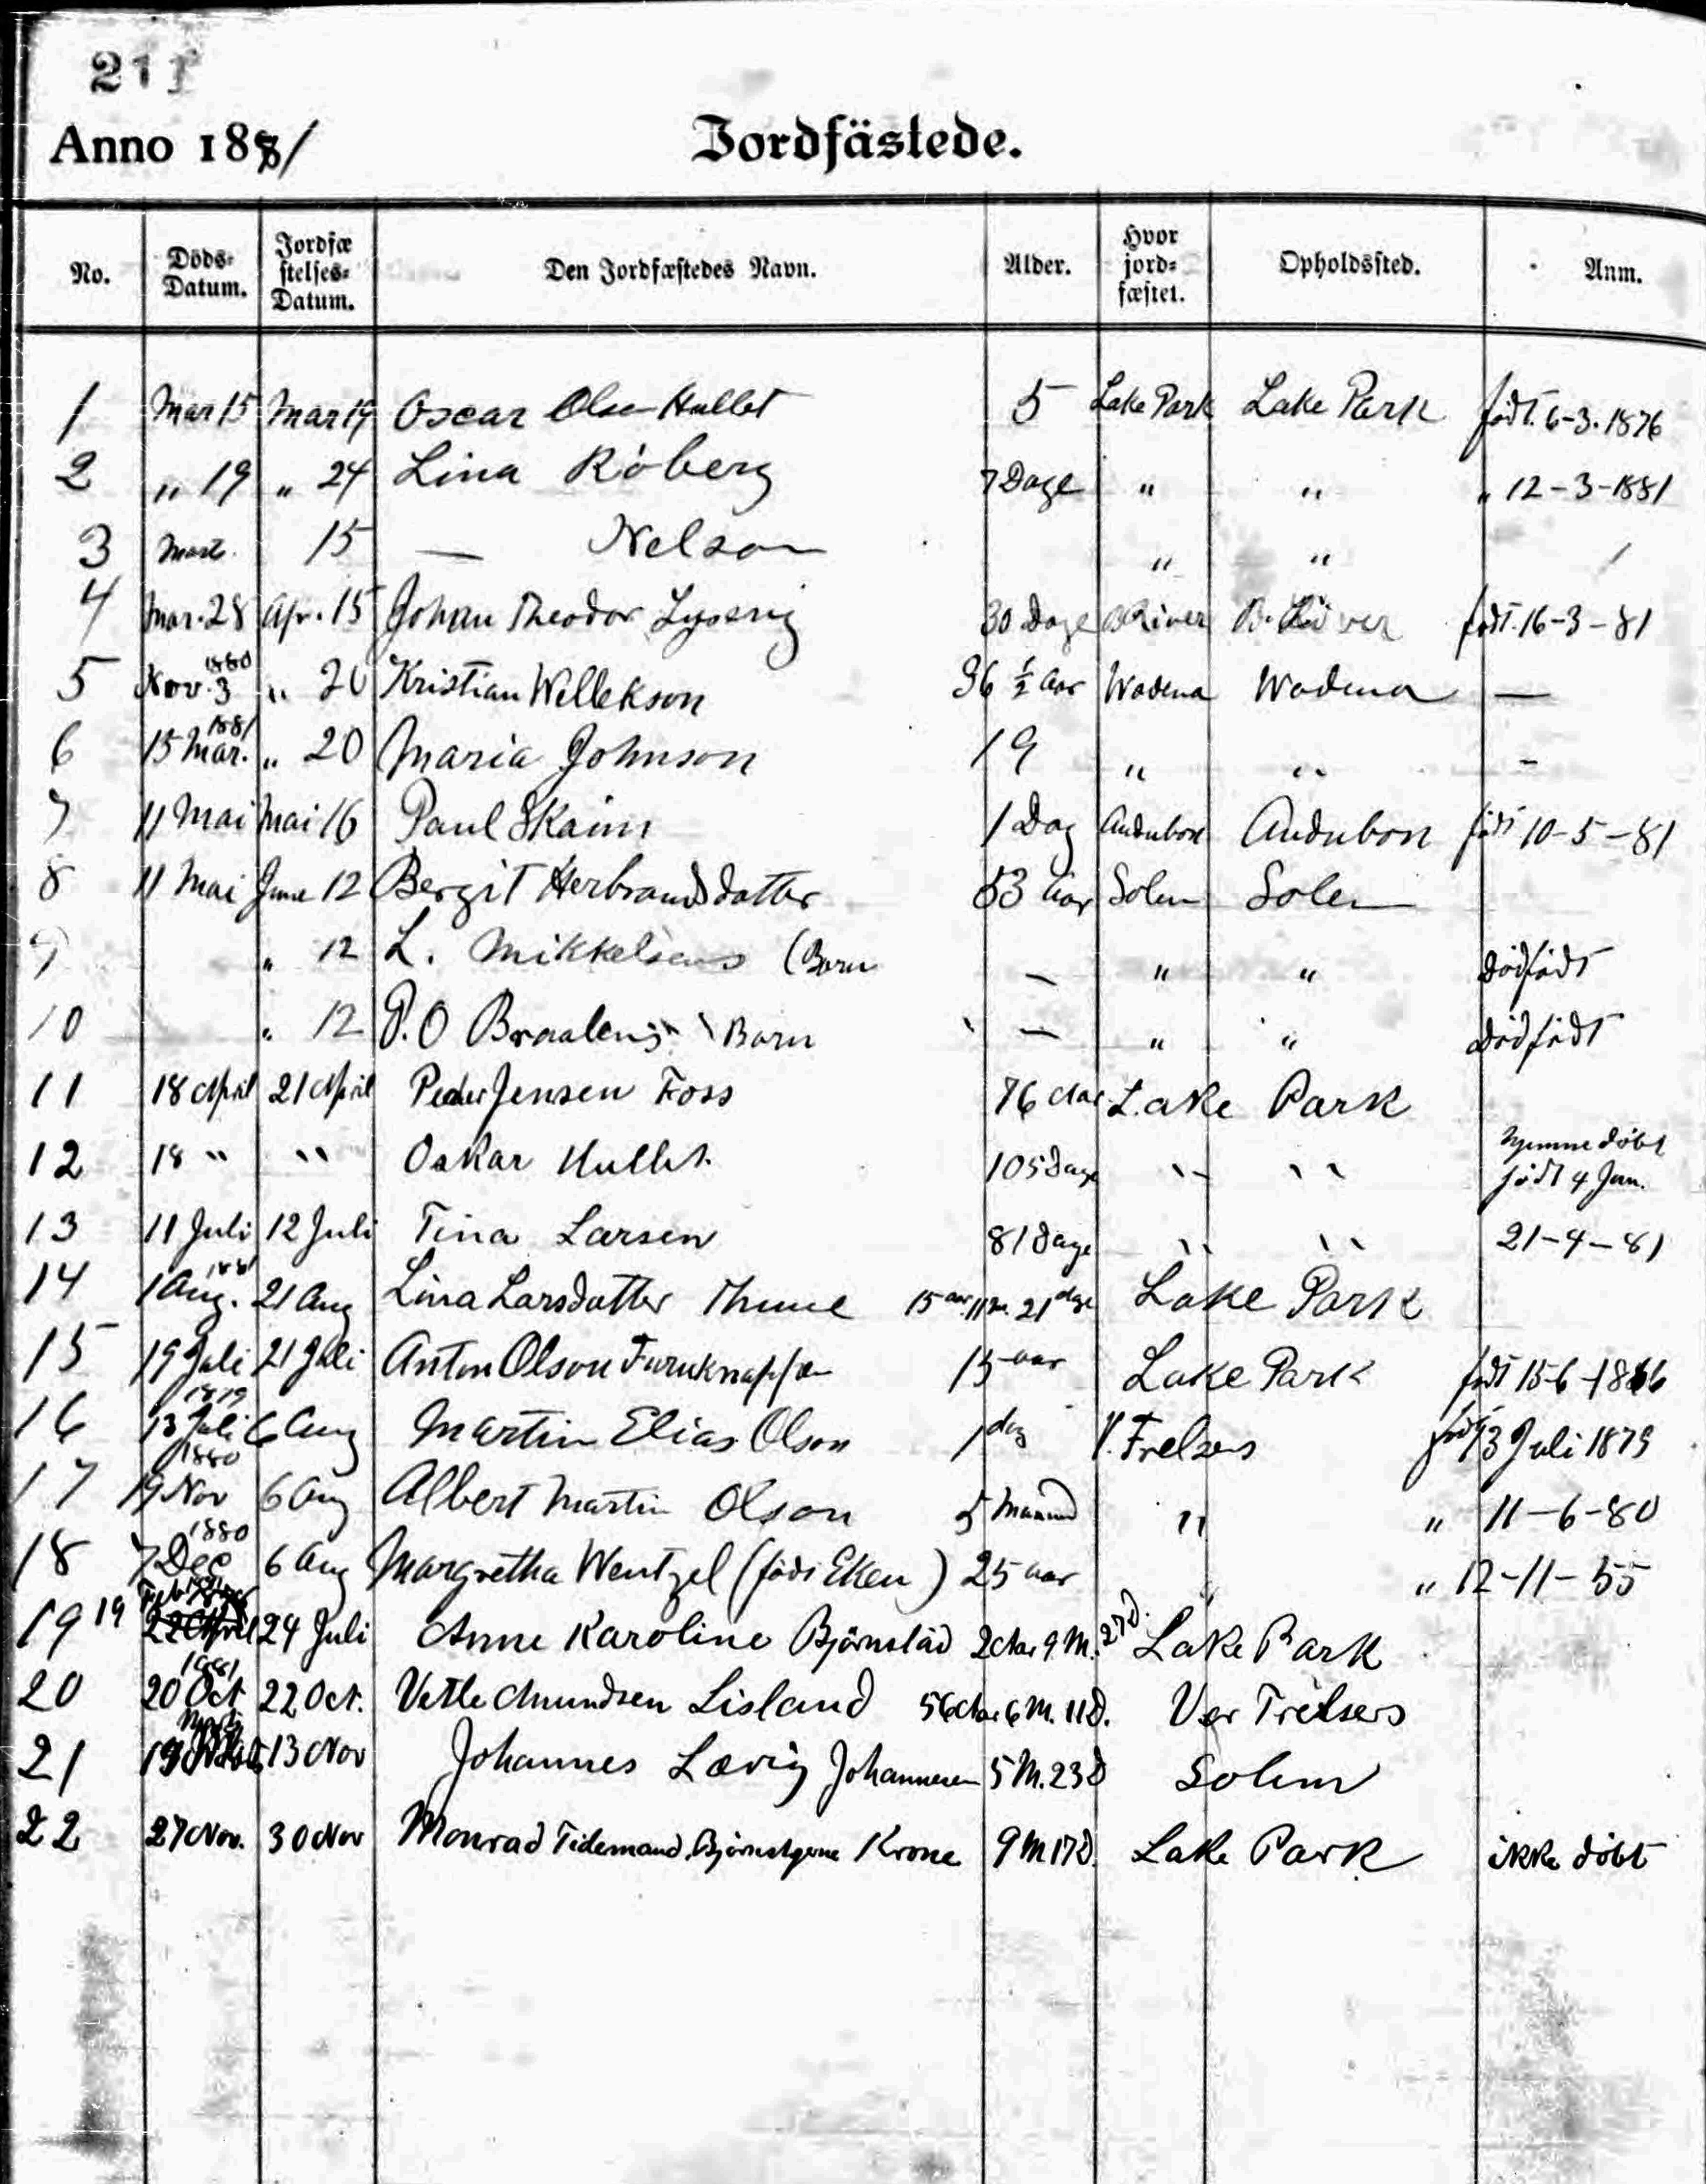 211
Anno 1881
Jordfästede.
No. Döds-Datum. Jordfæstelses-Datum. Den Jordfæstedes Navn. Alder. Hvor jordfæstet. Opholdssted. Anm.
1 Mar 15 Mar 19 Oscar Olsen Hullet 5 Lake Park Lake Park født. 6-3-1876
2 " 19 " 24 Lina Röberg 7 Dage " " " 12-3-1881
3 15 — Nelson " "
4 Mar. 28 Apr. 15 Johan Theodor 30 Dage B River B. River født. 16-3-81
5 Nov. 3 1880 " 20 Kristian Willekson 36 ½ Aar Wadena Wadena —
6 15 Mar. 1881 " 20 Maria Johnson 19 " " -
7 11 Mai Mai 16 Paul Skaim 1 Dag Audubon Audubon født 10-5-81
8 11 Mai June 12 Bergit Herbrandsdatter 53 Aar Solem Solem
9 " 12 L. Mikkelsens (Barn — " " Dødfødt
10 " 12 P. O Braatens Barn — " " Dødfødt
11 18 April 21 April Peder Jensen Foss 76 Aar Lake Park
12 18 " " Oskar Hullet. 105 Dage " " hjemmedöbt født 4 Jan.
13 11 Juli 12 Juli Tina Larsen 81 Dage " " 21-4-81
14 1 Aug. 1881 21 Aug Lina Larsdatter Thune 15 aar 11 m. 21 dge Lake Park
15 19 Juli 21 Juli Anton Olson 15 aar Lake Park født 15-6-1866
16 13 Juli 1879 6 Aug Martin Elias Olson 1 dag V. Frelsers født 13 Juli 1879
17 19 Nov 1880 6 Aug Albert Martin Olson 5 Maaned " " 11-6-80
18 7 Dec 1880 6 Aug Margretha Wentzel (født Eken) 25 aar " " 12-11-55
19 19 24 Juli Anne Karoline Björnstad 2 Aar 9 M. 27 D. Lake Park
20 20 Oct 1881 22 Oct. Vetle Amundsen Lisland 56 Aar 6 M. 11 D. Vor Frelsers
21 19 13 Nov Johannes Lavrig Johannesen 5 M. 23 D Solem
22 27 Nov. 30 Nov Monrad Tidemand Björnstjerne Krone 9 M 17 D. Lake Park ikke döbt